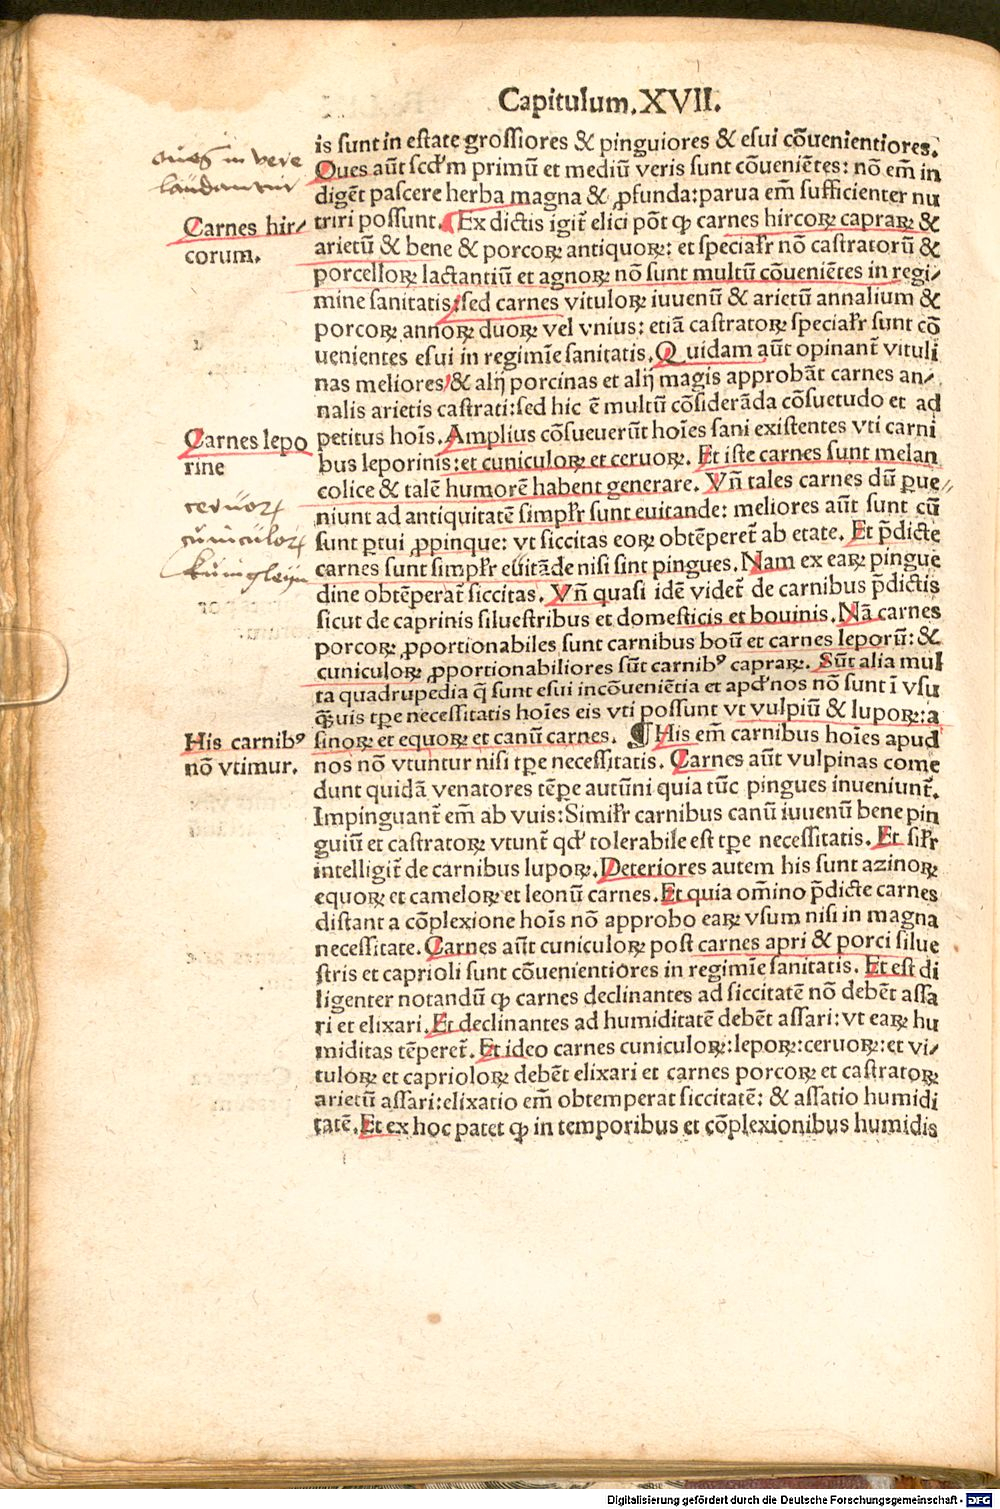 Capitulum.XVII.
is sunt in estate grossiores & pinguiores & esui cõuenientiores.
oues in vere
laudantur
Oues aũt scd'm primũ et mediũ veris sunt cõueniẽtes: nõ em̃ in
digẽt pascere herba magna & ꝓfunda: parua em̃ sufficienter nu
Carnes hir⸗
corum.
triri possunt. ¶ Ex dictis igit̃ elici põt ꝙ carnes hircoꝝ capraꝝ &
arietũ & bene & porcoꝝ antiquoꝝ: et speciaľr nõ castratorũ &
porcelloꝝ lactantiũ et agnoꝝ nõ sunt multũ cõueniẽtes in regi⸗
mine sanitatis: sed carnes vituloꝝ iuuenũ & arietũ annalium &
porcoꝝ annoꝝ duoꝝ vel vnius: etiã castratoꝝ speciaľr sunt cõ
uenientes esui in regimĩe sanitatis. Quidam aũt opinant̃ vituli
nas meliores/ & alij porcinas et alij magis approbãt carnes an⸗
nalis arietis castrati: sed hic ẽ multũ cõsiderãda cõsuetudo et ad
Carnes lepo
rine
petitus hoĩs. Amplius cõsueuerũt hoĩes sani existentes vti carni
bus leporinis: et cuniculoꝝ et ceruoꝝ. Et iste carnes sunt melan
colice & talẽ humorẽ habent generare. Vñ tales carnes dũ ꝑue⸗
ceruoꝝ
cuniculoꝝ
niunt ad antiquitatẽ simpľr sunt euitande: meliores aũt sunt cũ
sunt ꝑtui ꝓpinque: vt siccitas eoꝝ obtẽperet̃ ab etate. Et p̃dicte
carnes sunt simpľr euitãde nisi sint pingues. Nam ex eaꝝ pingue
dine obtẽperat̃ siccitas. Vñ quasi idẽ videt̃ de carnibus p̃dictis
sicut de caprinis siluestribus et domesticis et bouinis. Nã carnes
porcoꝝ ꝓportionabiles sunt carnibus boũ et carnes leporũ: &
cuniculoꝝ ꝓportionabiliores sũt carnibꝰ capraꝝ. Sũt alia mul
ta quadrupedia q̃ sunt esui incõueniẽtia et apd' nos nõ sunt ĩ vsu
q̃uis tꝑe necessitatis hoĩes eis vti possunt vt vulpiũ & lupoꝝ: a
His carnibꝰ
nõ vtimur.
sinoꝝ et equoꝝ et canũ carnes. ¶ His em̃ carnibus hoĩes apud
nos nõ vtuntur nisi tꝑe necessitatis. Carnes aũt vulpinas come
dunt quidã venatores tẽpe autũni quia tũc pingues inueniunt̃.
Impinguant̃ em̃ ab vuis: Similr̃ carnibus canũ iuuenũ bene pin
guiũ et castratoꝝ vtunt̃ qd' tolerabile est tꝑe necessitatis. Et siľr
intelligit̃ de carnibus lupoꝝ. Deteriores autem his sunt azinoꝝ
equoꝝ et cameloꝝ et leonũ carnes. Et quia om̃ino p̃dicte carnes
distant a cõplexione hoĩs nõ approbo eaꝝ vsum nisi in magna
necessitate. Carnes aũt cuniculoꝝ post carnes apri & porci silue
stris et caprioli sunt cõuenientiores in regimĩe sanitatis. Et est di
ligenter notandũ ꝙ carnes declinantes ad siccitatẽ nõ debẽt assa
ri et elixari. Et declinantes ad humiditatẽ debẽt assari: vt eaꝝ hu
miditas tẽperet̃. Et ideo carnes cuniculoꝝ: lepoꝝ: ceruoꝝ: et vi⸗
tuloꝝ et caprioloꝝ debẽt elixari et carnes porcoꝝ et castratoꝝ
arietũ assari: elixatio em̃ obtemperat siccitatẽ: & assatio humidi
tatẽ. Et ex hoc patet ꝙ in temporibus et cõplexionibus humidis
Digitalisierung gefördert durch die Deutsche Forschungsgemeinschaft - DFG